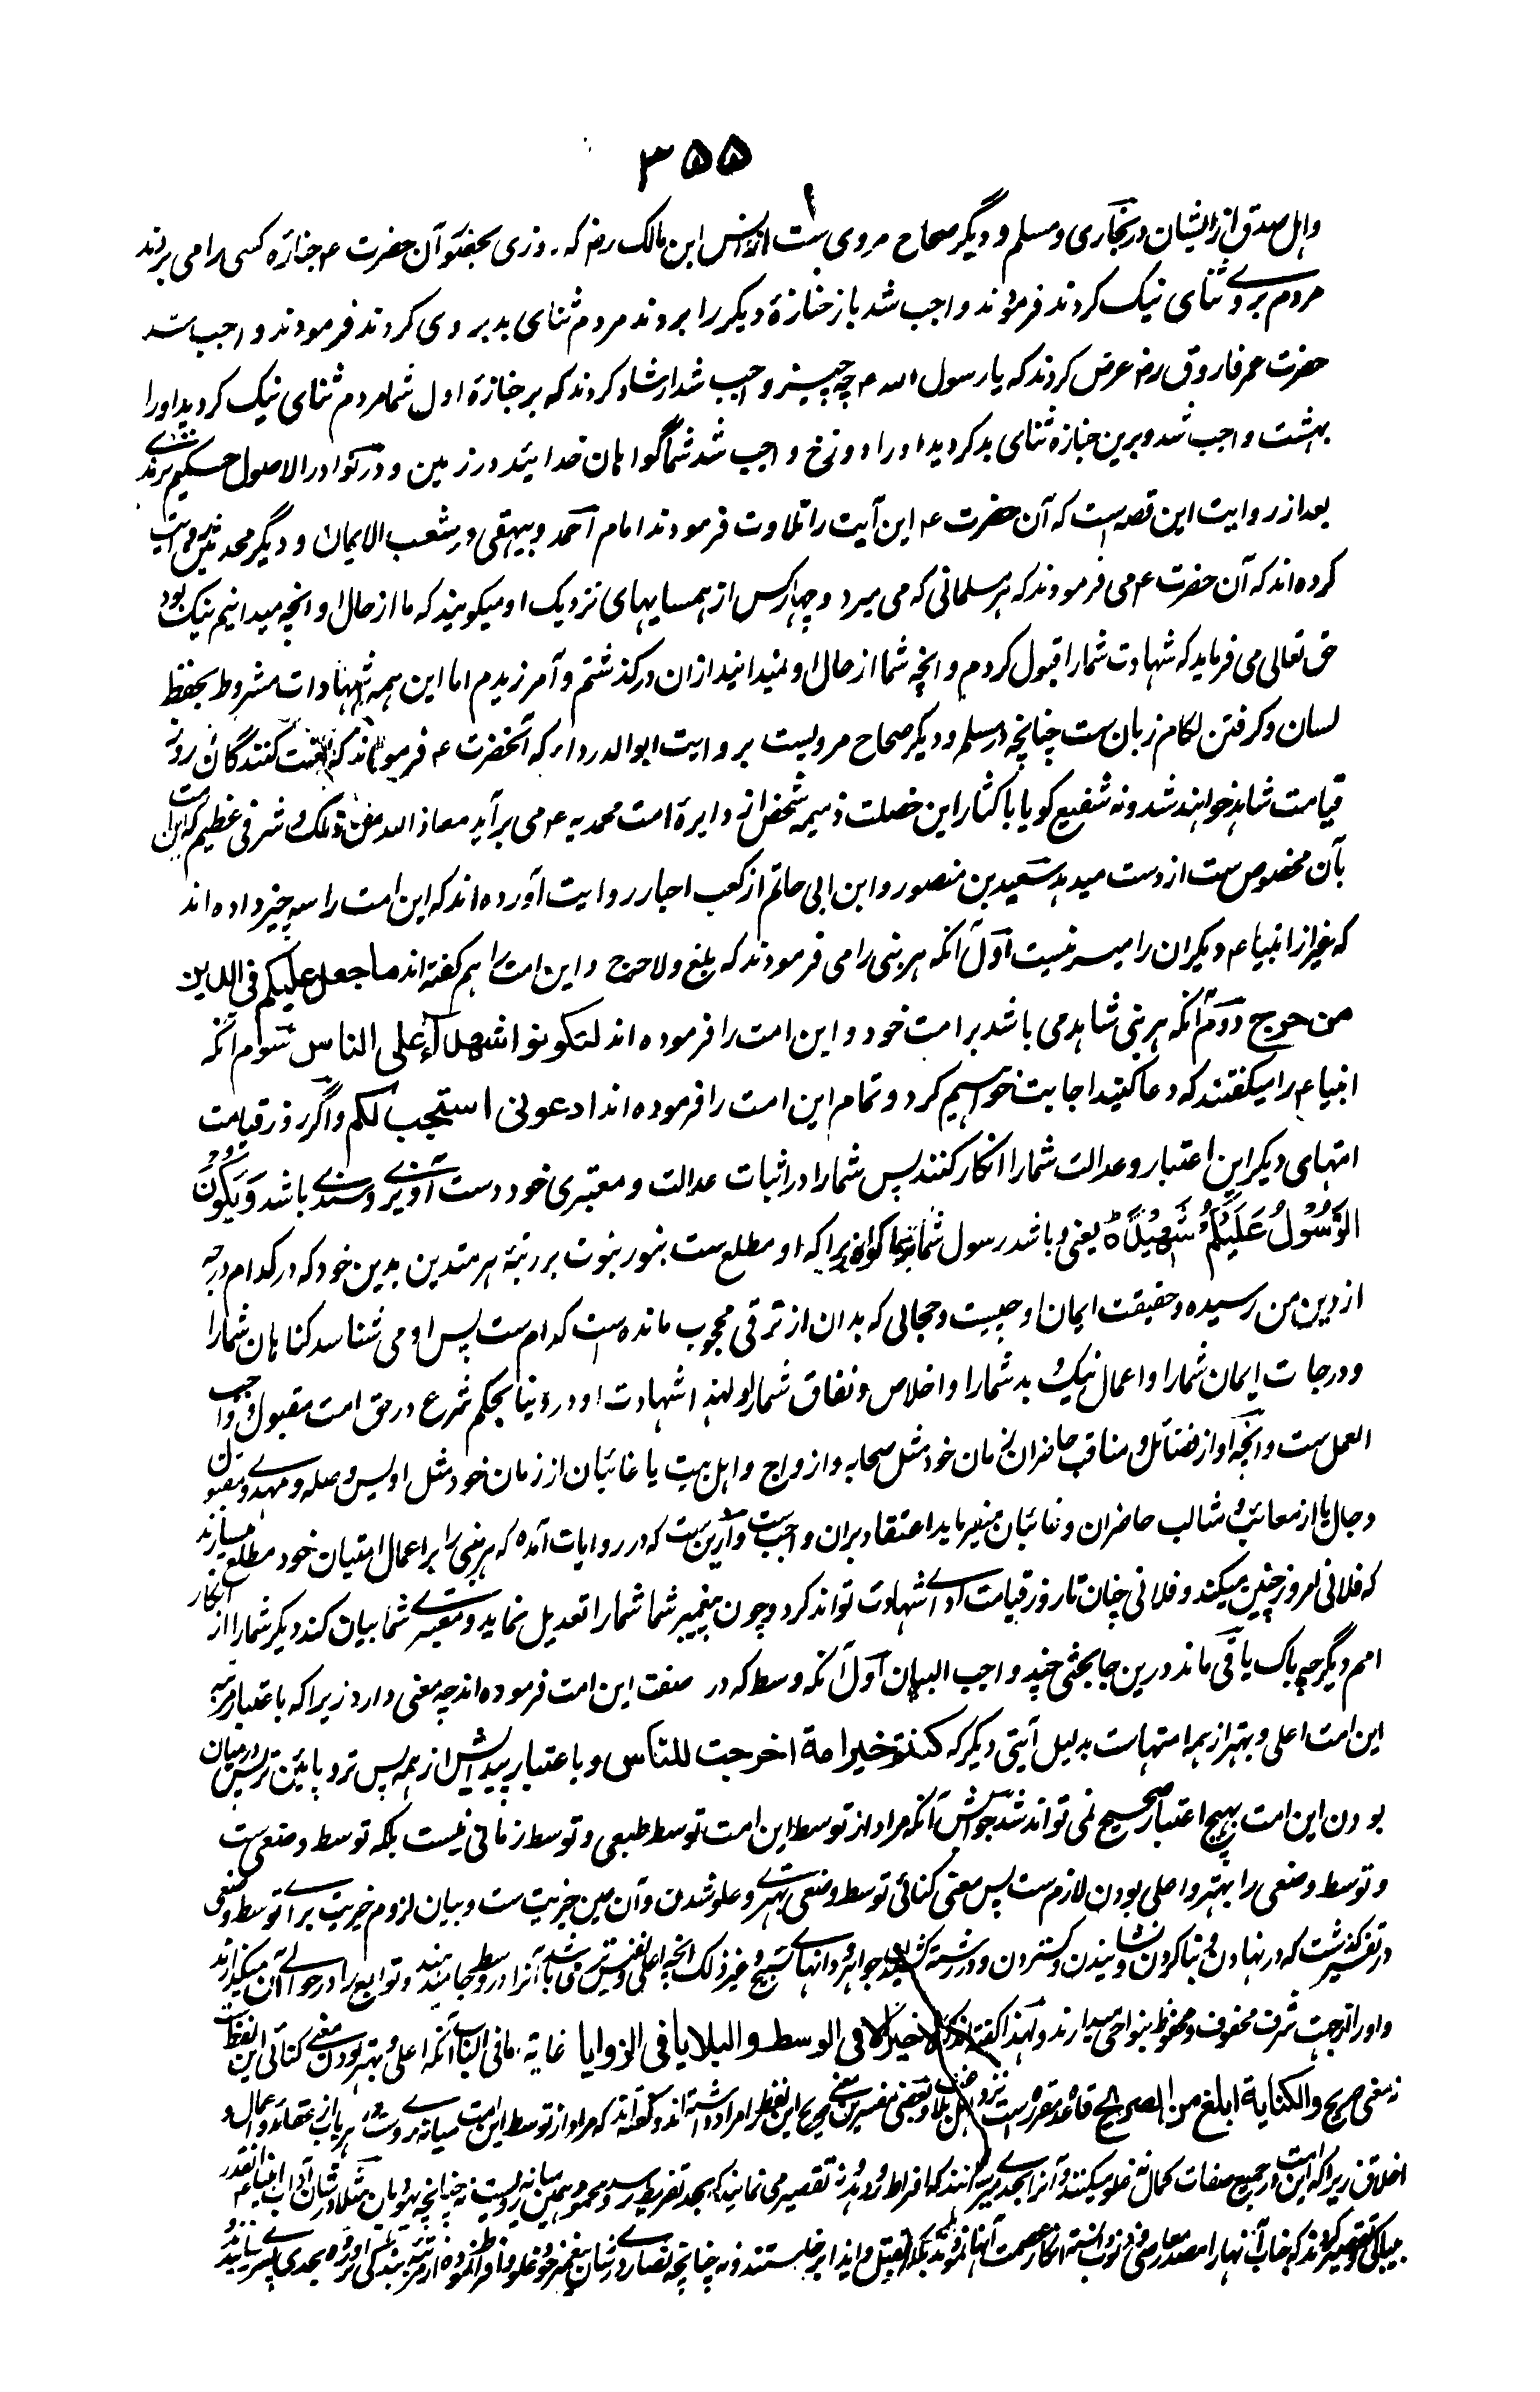 ۳۵۵
واہل صدق از ایشان در بخاری و مسلم و دیگر صحاح مروی ست از انس ابن مالک رضہ کہ روزی بحضور آن حضرت ۴ جنازہ کسی را می بردند
مردم بروے ثنای نیک کردند فرمودند واجب شد باز جنازۂ دیگر را بردند مردم ثنای بد بر وی کردند فرمودند واجب شد
حضرت عمر فاروق رضہ عرض کردند کہ یا رسول اللہ ۴ چہ چیز واجب شد ارشاد کردند کہ بر جنازۂ اول شما مردم ثنای نیک کردید او را
بہشت واجب شد و برین جنازہ ثنای بد کردید او را دوزخ واجب شد شما گواہان خدائید در زمین و در نوادر الاصول حکیم ترمذے
بعد از روایت این قصہ است کہ آن حضرت ۴ این آیت را تلاوت فرمودند امام احمد و بیہقی در شعب الایمان و دیگر محدثین روایت
کردہ اند کہ آن حضرت ۴ می فرمودند کہ ہر مسلمانی کہ می میرد و چہار کس از ہمسایہای نزدیک او میگویند کہ ما از حال او انچہ میدانیم نیک بود
حق تعالی می فرماید کہ شہادت شما را قبول کردم و انچہ شما از حال او نمیدانید ازان در گذشتم و آمرزیدم اما این ہمہ شہادات مشروط بحفظ
لسان و گرفتن لگام زبان ست چنانچہ در مسلم و دیگر صحاح مرویست بروایت ابو الدرداء کہ آنحضرت ۴ فرمودہ اند کہ لعنت کنندگان روز
قیامت شاہد نخواہند شد و نہ شفیع گویا باکثار این خصلت ذمیمہ شخص از دایرۂ امت محمدیہ ۴ می برآید معاذ اللہ من ذلک و شرفی عظیم کہ این امت
بآن مخصوص ست از دست میدہد سعید بن منصور و ابن ابی حاتم از کعب احبار روایت آوردہ اند کہ این امت را سہ چیز دادہ اند
کہ غیر از انبیاء ۴ دیگران را میسر نیست اول آنکہ ہر نبی را می فرمودند کہ بلغ ولا حرج و این امت را ہم گفتہ اند ما جعل علیکم فی الدین
من حرج دوم آنکہ ہر نبی شاہد می باشد بر امت خود و این امت را فرمودہ اند لتکونوا شھداء علی الناس سوم آنکہ
انبیاء ۴ را میگفتند کہ دعا کنید اجابت خواہیم کرد و تمام این امت را فرمودہ اند ادعونی استجب لکم و اگر روز قیامت
امتہای دیگر این اعتبار و عدالت شما را انکار کنند پس شما را در اثبات عدالت و معتبری خود دست آویزے و سندے باشد وَ یَکُوْنَ
الرَّسُوْلُ عَلَیْکُمْ شَھِیْدًا ط یعنی و باشد رسول شما بر شما گواہ زیرا کہ او مطلع ست بنور نبوت بر رتبۂ ہر متدین بدین خود کہ در کدام درجہ
از دین من رسیدہ و حقیقت ایمان او چیست و حجابی کہ بدان از ترقی محجوب ماندہ است کدام ست پس او می شناسد گناہان شما را
و درجات ایمان شما را و اعمال نیک و بد شما را و اخلاص و نفاق شما را و لہذا شہادت او در دنیا بحکم شرع در حق امت مقبول و واجب
العمل ست و آنچہ او از فضائل و مناقب حاضران زمان خود مثل صحابہ و ازواج و اہل بیت یا غائبان از زمان خود مثل اویس و صلہ و مہدے و مقتول
دجال یا از معائب و مثالب حاضران و غائبان میفرماید اعتقاد بران واجب ست و ازین ست کہ در روایات آمدہ کہ ہر نبی را بر اعمال امتیان خود مطلع میسازند
کہ فلانی امروز چنین میکند و فلانی چنان تا روز قیامت اداے شہادت تواند کرد و چون پیغمبر شما شما را تعدیل نماید و معتبرے شما بیان کند دیگر شما را از انکار
امم دیگر چہ باک باقی ماند درین جا بحثی چند واجب البیان اول آنکہ وسط کہ در صفت این امت فرمودہ اند چہ معنی دارد زیرا کہ باعتبار مرتبہ
این امت اعلی و بہتر از ہمہ امتہاست بدلیل آیتی دیگر کہ کنتم خیر امة اخرجت للناس و باعتبار پیدایش از ہمہ پس تر و پائین تر پس درمیان
بودن این امت بہیچ اعتبار صحیح نمی تواند شد جوابش آنکہ مراد از توسط این امت توسط طبعی و توسط زمانی نیست بلکہ توسط وضعی ست
و توسط وضعی را بہتر و اعلی بودن لازم ست پس معنی کنائی توسط وضعی بہترے و علو شدن و آن عین خیریت ست و بیان لزوم خیریت براے توسط وضعی
در تفسیر گذشت کہ در نہادن و بنا کردن و نشانیدن و گستردن و در رشتہ کشیدن جواہر و دانہاے تسبیح و غیر ذلک انچہ اعلی و نفیس تر می باشد آنرا در وسط جا میدہند و توابع را در حوالے آن میگذارند
و او را از جہت شرف محفوف و محفوظ بنواحی میدارند و لہذا گفتہ اند کہ لا خیر الا فی الوسط و البلایا فی الزوایا غایة ما فی الباب آنکہ اعلی و بہتر بودن معنی کنائی این لفظ است
نہ معنی صریح و الکنایة ابلغ من الصریح قاعدہ مقررہ است نزد اہل بلاغت و بعضی مفسرین معنی صریح این لفظ را مراد داشتہ اند و گفتہ اند کہ مراد از توسط این امت میانہ روے ست در ہر باب از عقائد و اعمال و
اخلاق زیرا کہ این امت در جمیع صفات کمال نہ غلو میکنند و آنرا بحدے میرسانند کہ افراط رو دہد و نہ تقصیر می نمایند کہ بحد تفریط رسد و محمود ہمین میانہ رویست نہ چنانچہ یہودیان مثلا در شان انبیاء ۴ آنقدر
بیباکی و تقصیر کردند کہ جناب آنہا را مصدر معاصی و ذنوب دانستہ انکار عصمت آنہا نمودند بلکہ بقتل و ایذا برخاستند و نہ چنانچہ نصارے در شان پیغمبر خود غلو و افراط نمودہ از مرتبہ بندگی برآوردہ بحدی رسانیدند